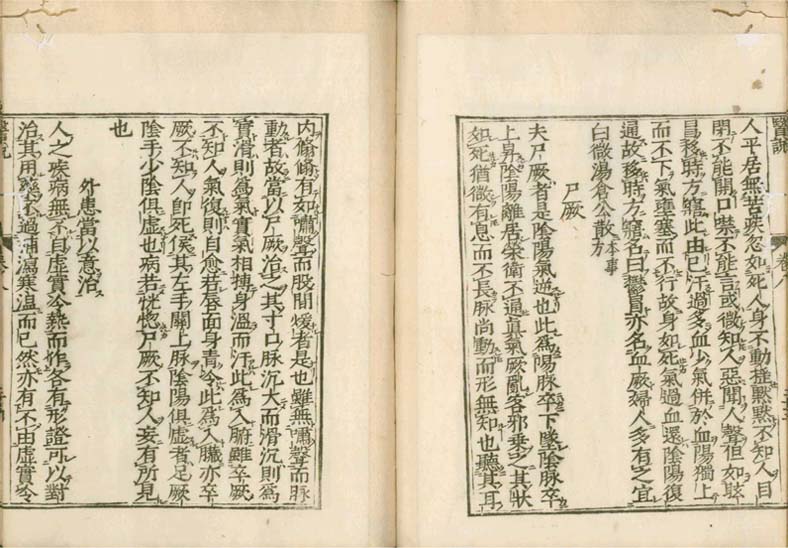 人平居無苦疾忽如死人身不動揺黙黙不知人目
閉不能開口噤不能言或微知人悪聞人聲但如眩
冒移時方寤此由已汗過多血少氣併於血陽獨上
而不下氣壅塞而不行故身如死氣過血還陰陽復
通故移時方寤名曰欝冒亦名血厥婦人多有之宜
白微湯倉公散方本事
尸厥
夫尸厥者是陰陽氣逆也此為陽脉卒下墜陰脉卒
上昇陰陽離居榮衛不通真氣厥亂客邪乗之其狀
如死猶微有息而不長脉尚動而形無知也聽其耳
醫説
巻八
内脩脩有如嘯聲而股間煖者是也雖無嘯聲而脉
動者故當以尸厥治之其寸口脉沉大而滑沉則為
實滑則為氣實氣相搏身溫而汗此為入腑雖卒厥
不知人氣復則自愈若唇面身青冷此為入臓亦卒
厥不知人即死候其左手關上脉陰陽俱虚者足厥
陰手少陰俱虚也病若恍惚尸厥不知人妄有所見
也
外患當以意治
人之疾病無不自虚實冷熱而作各有形證可以對
治其用藥不過補瀉寒溫而已然亦有不由虚實冷
醫説
巻八